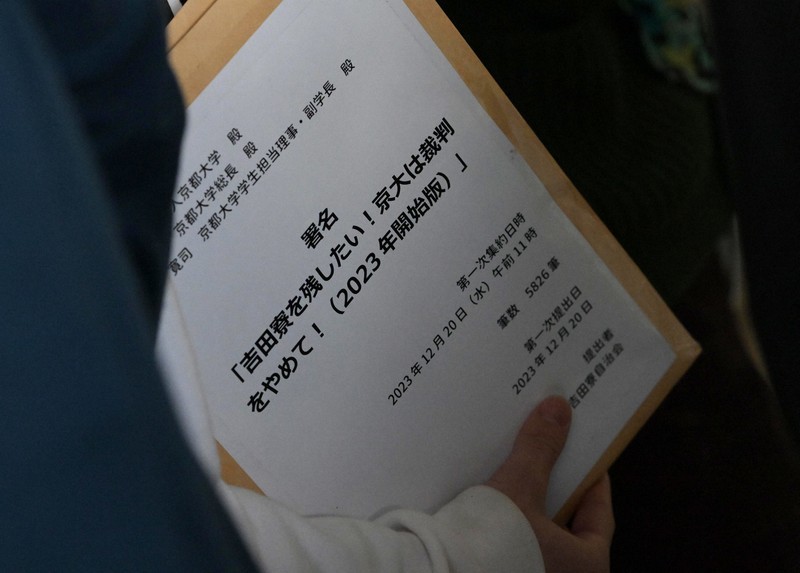 人京都大学 殿
京都大学総長 殿
寛司 京都大学学生担当理事・副学長 殿
署名
「吉田寮を残したい！京大は裁判
をやめて！（2023年開始版）」
第一次集約日時
2023年12月20日（水）午前11時
筆数 5826筆
第一次提出日
2023年12月20日
提出者
吉田寮自治会